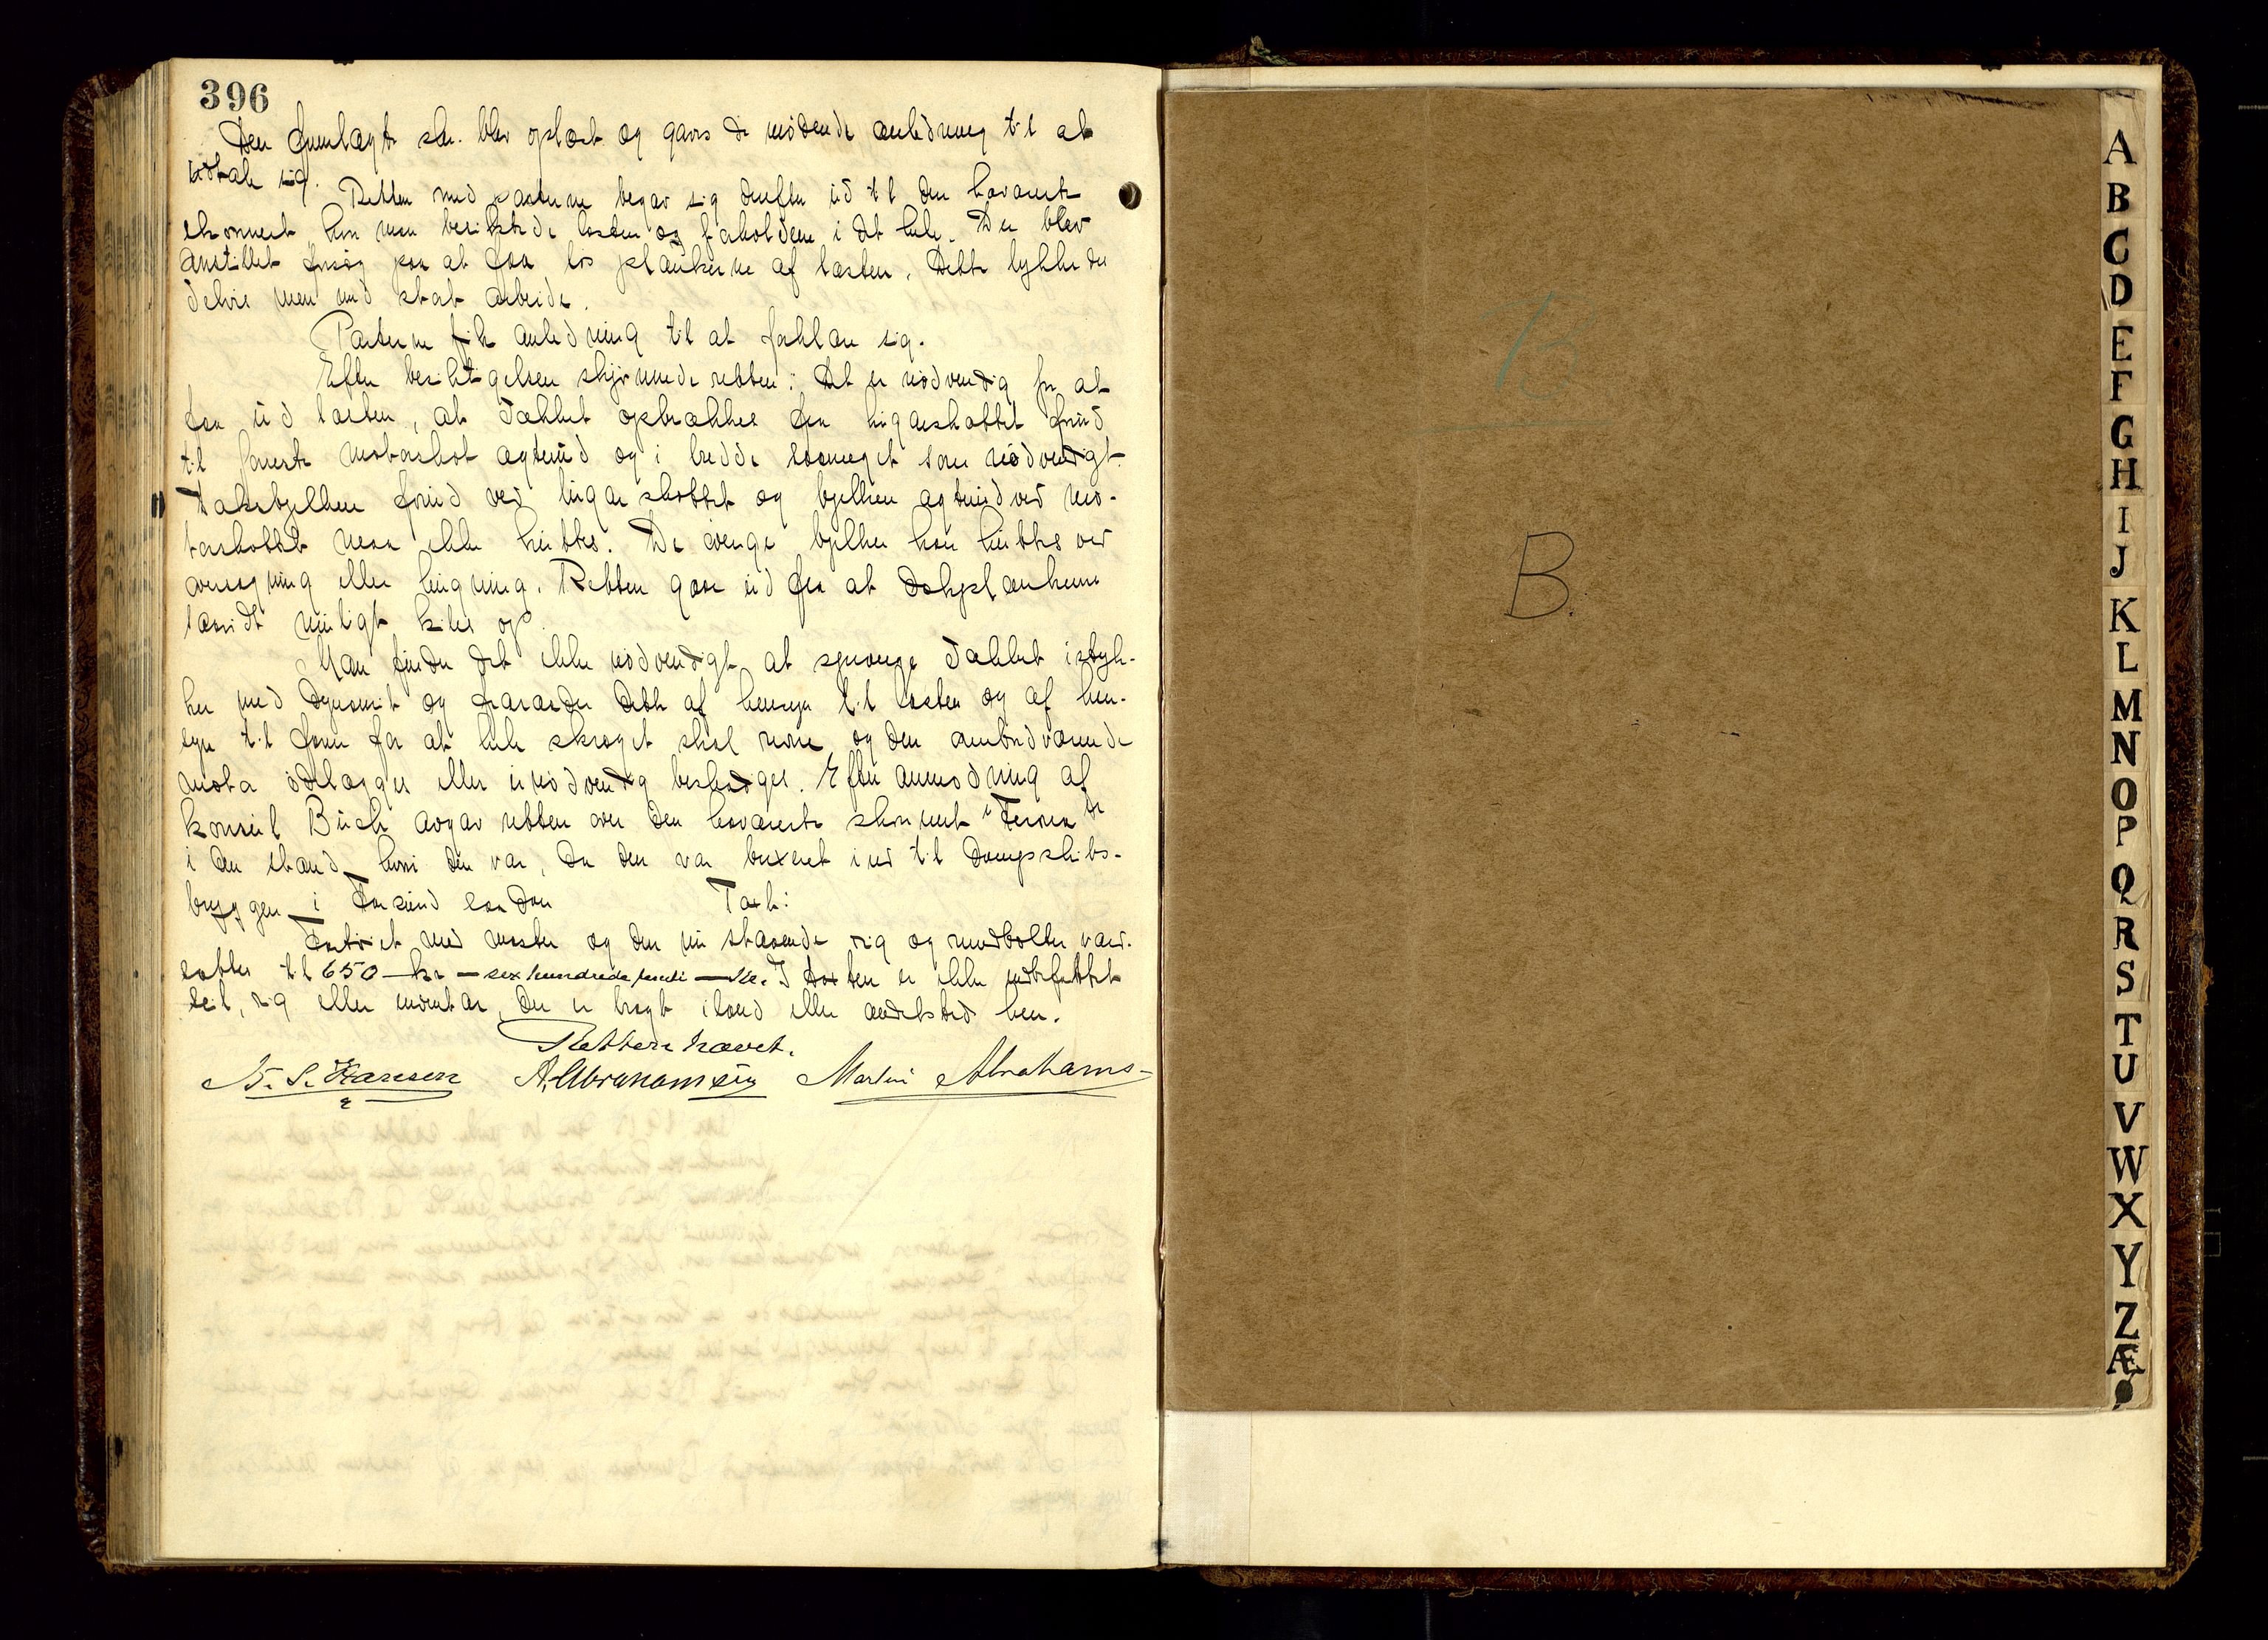 396
Den fremlagte skr. blev oplæst og gaves de mødende anledning til at
udtale sig.
Retten med parterne begav sig derefter ud til den havarerte
skonnert hvor man besiktigede lasten og forholdene i det hele. Der blev
anstillet forsøg paa at faa løs plankerne af lasten. Dette lykkedes
delvis men med stort arbeide.
Parterne fik anledning til at forklare sig.
Efter besiktigelsen skjønnede retten: Det er nødvendig for at
faa ud lasten, at dækket opbrækkes fra lugarskottet forud
til forreste motorskot agterud og i bredde saameget som nødvendigt.
Dæksbjelken forud ved lugar skottet og bjelken agterud ved mo-
torskottet maa ikke kuttes. De øvrige bjelker kan kuttes ved
oversagning eller hugning. Retten gaar ud fra at dæksplankerne
saavidt muligt kiles op.
Man finder det ikke nødvendigt at sprænge dækket istyk-
ker med dynamit og fraraader dette af hensyn til lasten og af hen-
syn til faren for at hele skroget skal ruine og den ombordværende
motor ødelægges eller unødvendig beskadiges. Efter anmodning af
konsul Buch avgav retten over den havarerte skonnert
i den stand, hvori den var, da den var buxeret ind til Dampskibs-
bryggen i Farsund saadan Takst:
Fartøiet med master og den nu staaende rig og rundholter værd-
sættes til 650 — kr — sex hundrede femti — kr. I taxten er ikke indbefattet
seil, rig eller inventar, der er bragt iland eller andetsted hen.
Retten hævet.
N. S. Hansen A. Abrahamsen Martin Abrahams-
B
B.
A
B
C
D
E
F
G
H
I
J
K
L
M
N
O
P
Q
R
S
T
U
V
W
X
Y
Z
Æ